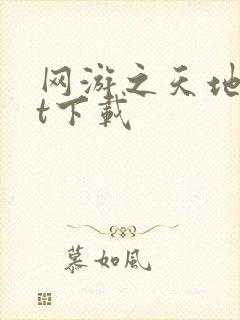 网游之天地
t下载
慕如风